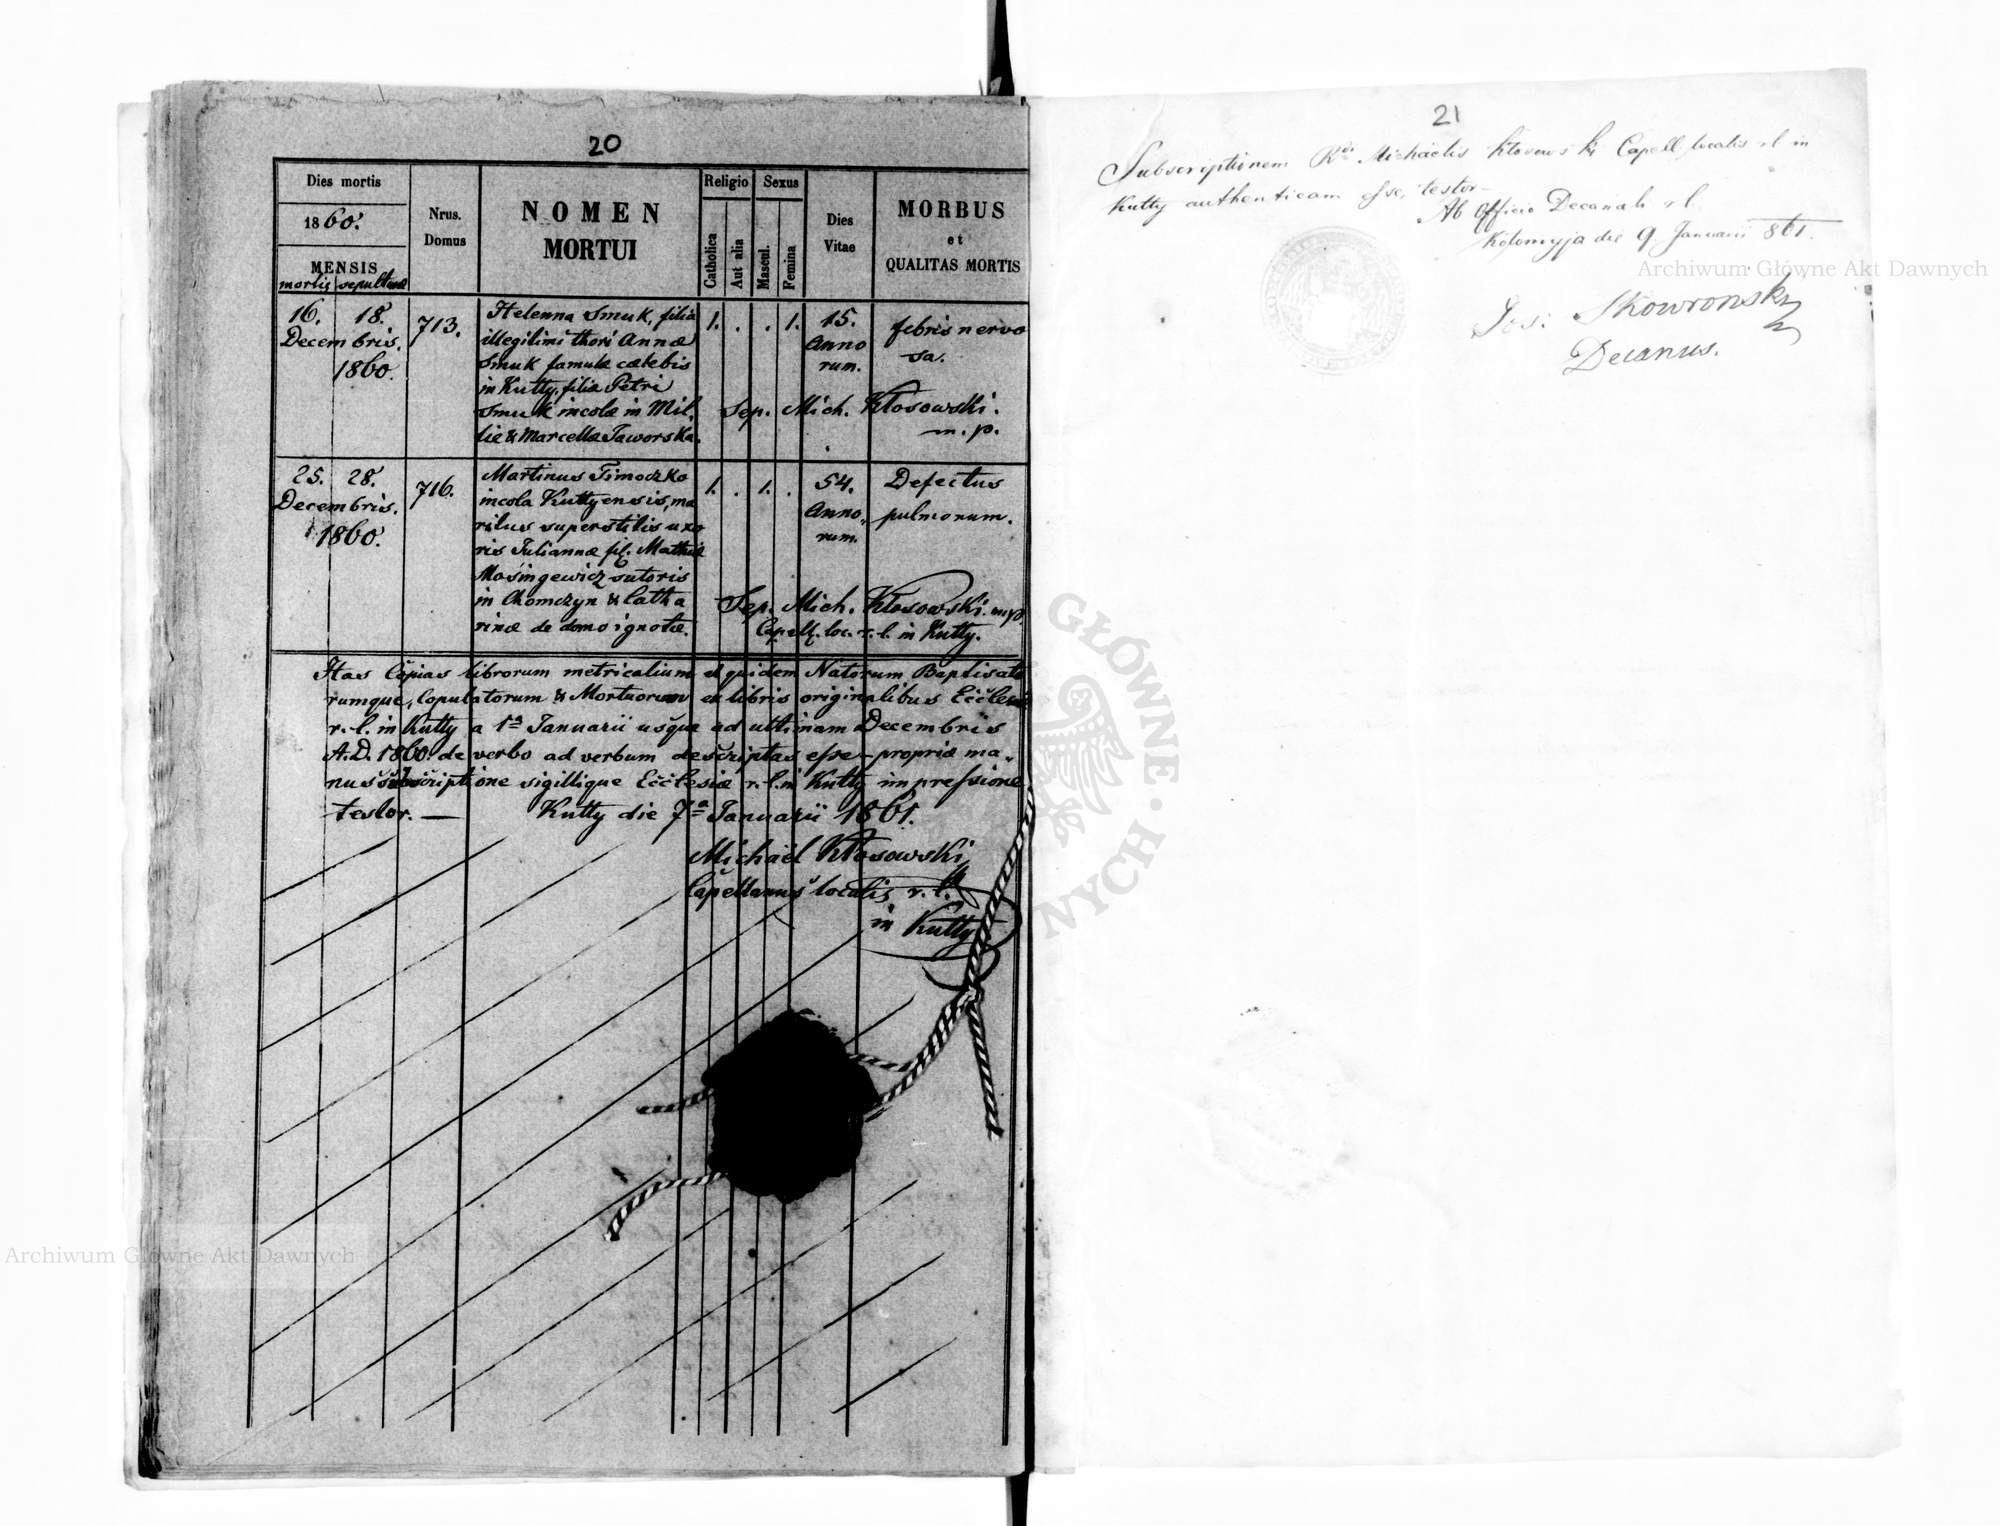 20
Dies mortis
1860.
MENSIS
mortis sepulturæ
Nrus.
Domus
NOMEN
MORTUI
Religio
Catholica
Aut alia
Sexus
Mascul.
Femina
Dies
Vitae
MORBUS
et
QUALITAS MORTIS
16. 18.
Decembris.
1860.
713.
Helenna Smuk, filia
illegitimi thori Annæ
Smuk famulæ cælebis
in Kutty, filiæ Petri
Smuk incolæ in Mil,
lie & Marcellæ Jaworska.
1. . . 1.
15.
Anno
rum.
febris nervo
sa.
Sep. Mich. Kłosowski.
m. p.
25. 28.
Decembris.
1860.
716.
Martinus Timoczko
incola Kuttyensis, ma
ritus superstitis uxo
ris Juliannæ fil. Mathiæ
Mosingewicz sutoris
in Chomczyn & Catha
rinæ de domo ignotæ.
1. . 1. .
54.
Anno,
rum.
Defectus
pulmonum.
Sep. Mich. Kłosowski. mp.
Capell. loc. r. l. in Kutty.
Has Copias librorum metricalium et quidem Natorum Baptisato
rumque, Copulatorum & Mortuorum ex libris originalibus Ecclesiæ
r. l. in Kutty a 1ª Januarii usque ad ultimam Decembris
A.D. 1860. de verbo ad verbum descriptas esse propriæ ma,
nus subscriptione sigillique Ecclesiæ r. l. in Kutty impressione
testor. — Kutty die 7ª Januarii 1861.
Michaël Kłosowski
Capellanus localis r. l.
in Kutty
21
Subscriptionem Rdi Michaelis Kłosowski Capell localis rl in
Kutty authenticam esse, testor—
Ab Officio Decanali rl.
Kołomyja die 9 Januarii 861.
Jos: Skowronski
Decanus.
Archiwum Główne Akt Dawnych
Archiwum Główne Akt Dawnych
GŁÓWNE
NYCH